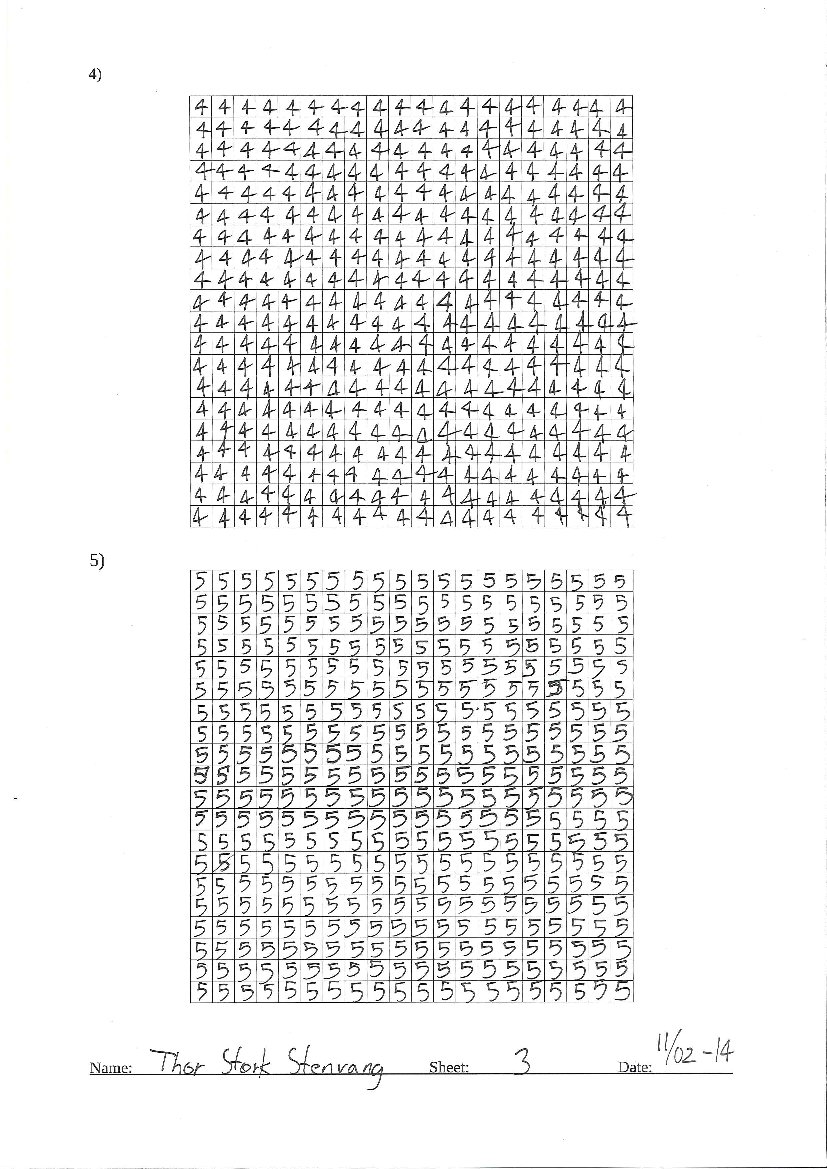 4)
4 4 4 4 4 4 4 4 4 4 4 4 4 4 4 4 4 4 4 4
4 4 4 4 4 4 4 4 4 4 4 4 4 4 4 4 4 4 4 4
4 4 4 4 4 4 4 4 4 4 4 4 4 4 4 4 4 4 4 4
4 4 4 4 4 4 4 4 4 4 4 4 4 4 4 4 4 4 4 4
4 4 4 4 4 4 4 4 4 4 4 4 4 4 4 4 4 4 4 4
4 4 4 4 4 4 4 4 4 4 4 4 4 4 4 4 4 4 4 4
4 4 4 4 4 4 4 4 4 4 4 4 4 4 4 4 4 4 4 4
4 4 4 4 4 4 4 4 4 4 4 4 4 4 4 4 4 4 4 4
4 4 4 4 4 4 4 4 4 4 4 4 4 4 4 4 4 4 4 4
4 4 4 4 4 4 4 4 4 4 4 4 4 4 4 4 4 4 4 4
4 4 4 4 4 4 4 4 4 4 4 4 4 4 4 4 4 4 4 4
4 4 4 4 4 4 4 4 4 4 4 4 4 4 4 4 4 4 4 4
4 4 4 4 4 4 4 4 4 4 4 4 4 4 4 4 4 4 4 4
4 4 4 4 4 4 4 4 4 4 4 4 4 4 4 4 4 4 4 4
4 4 4 4 4 4 4 4 4 4 4 4 4 4 4 4 4 4 4 4
4 4 4 4 4 4 4 4 4 4 4 4 4 4 4 4 4 4 4 4
4 4 4 4 4 4 4 4 4 4 4 4 4 4 4 4 4 4 4 4
4 4 4 4 4 4 4 4 4 4 4 4 4 4 4 4 4 4 4 4
4 4 4 4 4 4 4 4 4 4 4 4 4 4 4 4 4 4 4 4
4 4 4 4 4 4 4 4 4 4 4 4 4 4 4 4 4 4 4 4
5)
5 5 5 5 5 5 5 5 5 5 5 5 5 5 5 5 5 5 5 5
5 5 5 5 5 5 5 5 5 5 5 5 5 5 5 5 5 5 5 5
5 5 5 5 5 5 5 5 5 5 5 5 5 5 5 5 5 5 5 5
5 5 5 5 5 5 5 5 5 5 5 5 5 5 5 5 5 5 5 5
5 5 5 5 5 5 5 5 5 5 5 5 5 5 5 5 5 5 5 5
5 5 5 5 5 5 5 5 5 5 5 5 5 5 5 5 5 5 5 5
5 5 5 5 5 5 5 5 5 5 5 5 5 5 5 5 5 5 5 5
5 5 5 5 5 5 5 5 5 5 5 5 5 5 5 5 5 5 5 5
5 5 5 5 5 5 5 5 5 5 5 5 5 5 5 5 5 5 5 5
5 5 5 5 5 5 5 5 5 5 5 5 5 5 5 5 5 5 5 5
5 5 5 5 5 5 5 5 5 5 5 5 5 5 5 5 5 5 5 5
5 5 5 5 5 5 5 5 5 5 5 5 5 5 5 5 5 5 5 5
5 5 5 5 5 5 5 5 5 5 5 5 5 5 5 5 5 5 5 5
5 5 5 5 5 5 5 5 5 5 5 5 5 5 5 5 5 5 5 5
5 5 5 5 5 5 5 5 5 5 5 5 5 5 5 5 5 5 5 5
5 5 5 5 5 5 5 5 5 5 5 5 5 5 5 5 5 5 5 5
5 5 5 5 5 5 5 5 5 5 5 5 5 5 5 5 5 5 5 5
5 5 5 5 5 5 5 5 5 5 5 5 5 5 5 5 5 5 5 5
5 5 5 5 5 5 5 5 5 5 5 5 5 5 5 5 5 5 5 5
5 5 5 5 5 5 5 5 5 5 5 5 5 5 5 5 5 5 5 5
Name: Thor Stork Stenvang Sheet: 3 Date: 11/02-14